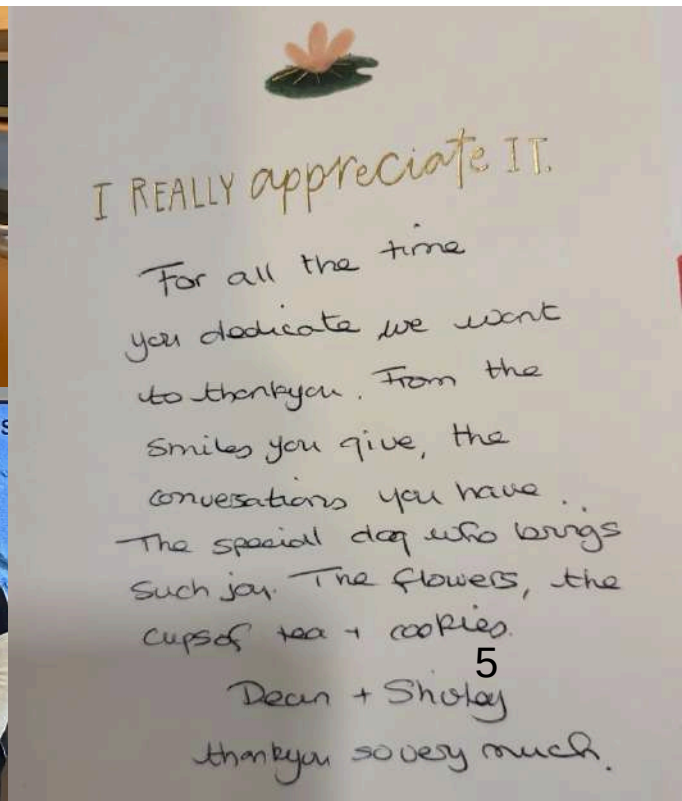 I REALLY appreciate IT.
For all the time
you dedicate we want
to thankyou. From the
smiles you give, the
conversations you have..
The special dog who brings
such joy. The flowers, the
cups of tea + cookies.
5
Dean + Shirley
thankyou so very much.